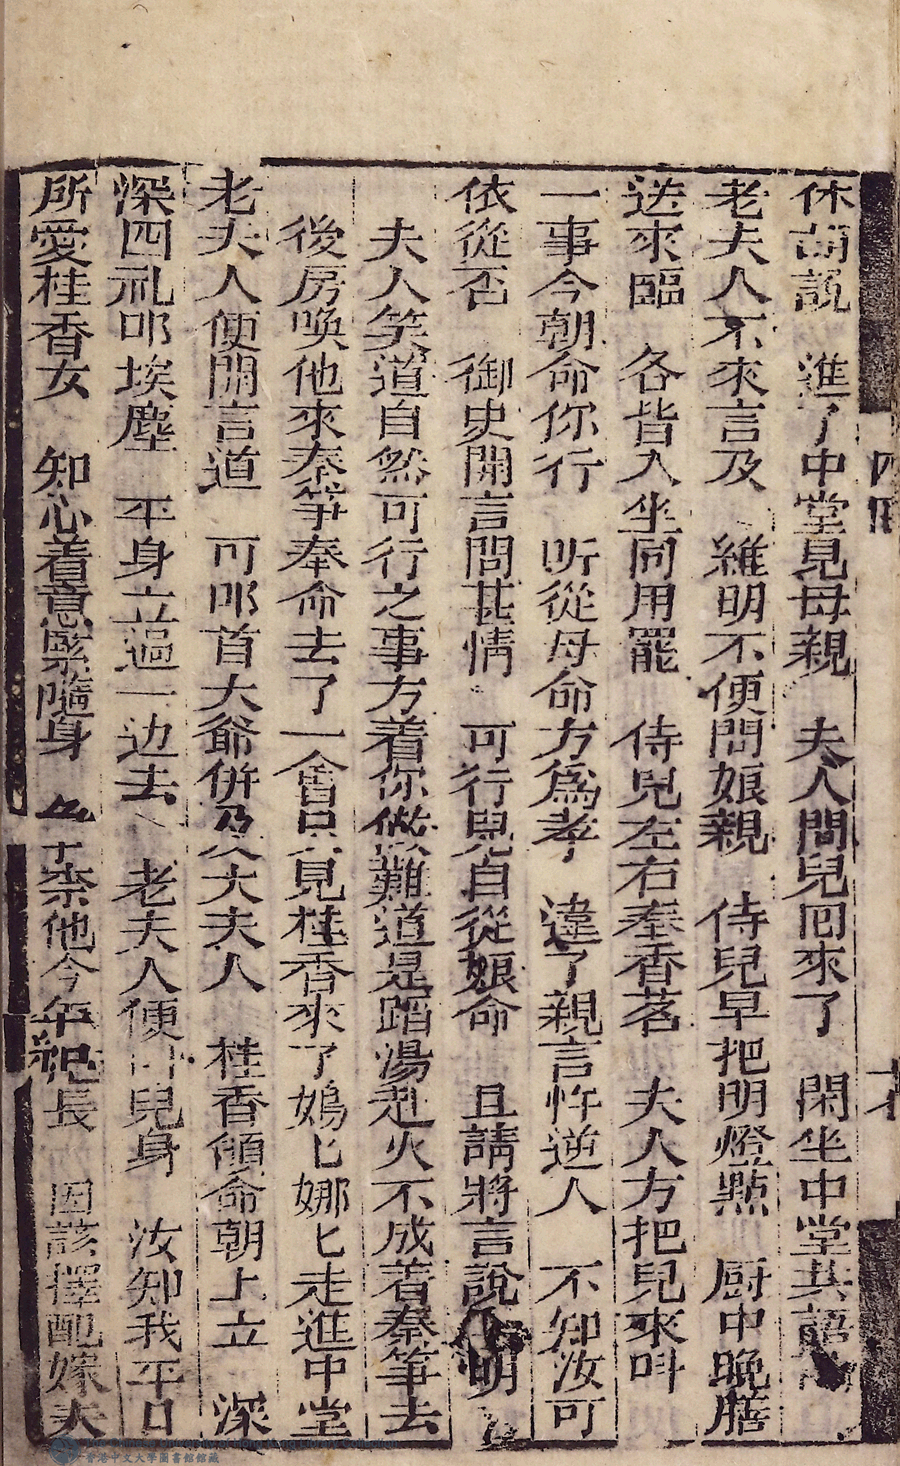 休胡説　進了中堂見母親　夫人問兒囘來了　閑坐中堂共語
老夫人不來言及　維明不便問娘親　侍兒早把明燈㸃　厨中晚膳
送來臨　各皆入坐同用罷　侍兒左右奉香茗　夫人方把兒來呌
一事今朝命你行　听從母命方爲孝　違了親言忤逆人　不知汝可
依從否　御史開言問甚情　可行兒自從娘命　且請將言說明
夫人笑道自然可行之事方着你做難道是蹈湯赴火不成着秦筝去
後房喚他來秦筝奉命去了一會只見桂香來了嫋匕娜匕走進中堂
老夫人便開言道　可叩首大爺併及大夫人　桂香領命朝上立　深
深四礼叩埃塵　平身立過一边去　老夫人便叫兒身　汝知我平日
所愛桂香女　知心着意緊隨身　奈他今年紀長　因該擇配嫁夫
香港中文大學圖書館館藏